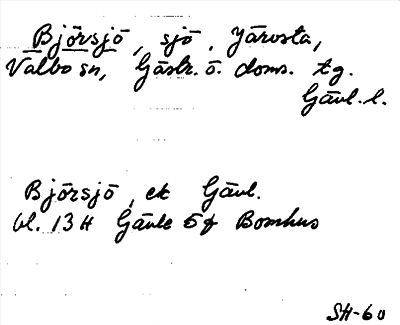 Björsjö, sjö, Järvsta,
Valbo sn, Gästr. ö. doms. tg.
Gävl. l.
Björsjö, ek Gävl.
bl. 13 H Gävle 5 f Bomhus
SH-60